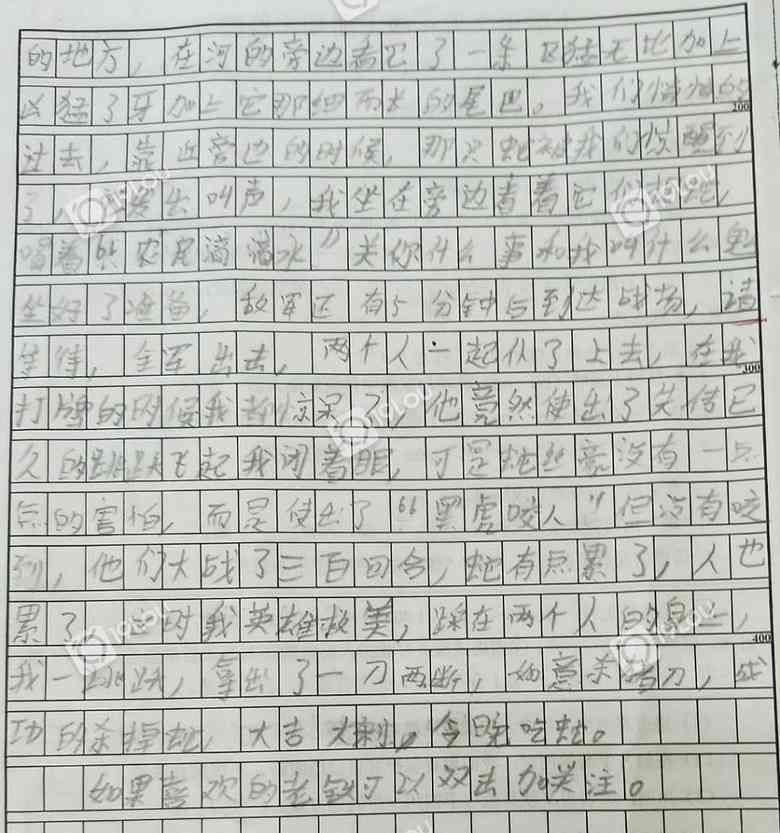 的地方，在河的旁边看它了一条凶猛无比加上
凶猛了牙加上它那细而长的尾巴。我们悄悄的
200
过去，靠近旁边的时候，那只蛇被我们惊醒到
了，发出叫声，我坐在旁边看着它们打蛇，
唱着“农民滴滴水”关你什么事和我叫什么鬼
坐好了准备，敌军还有5分钟后到达战场，请
等待，全军出击，两个人一起仆了上去，在我
300
打牌的时候我都惊呆了，他竟然使出了失传已
久的跳跃飞起我闭着眼，可是蛇丝毫没有一点
点的害怕，而是使出了“黑虎咬人”但没有咬
到，他们大战了三百回合，蛇有点累了，人也
累了 这时我英雄救美，踩在两个人的身上，
400
我一跳跃，拿出了一刀两断，如意杀猪刀，成
功的杀掉蛇，大吉大利，今晚吃蛇。
如果喜欢的老铁可以双击加关注。